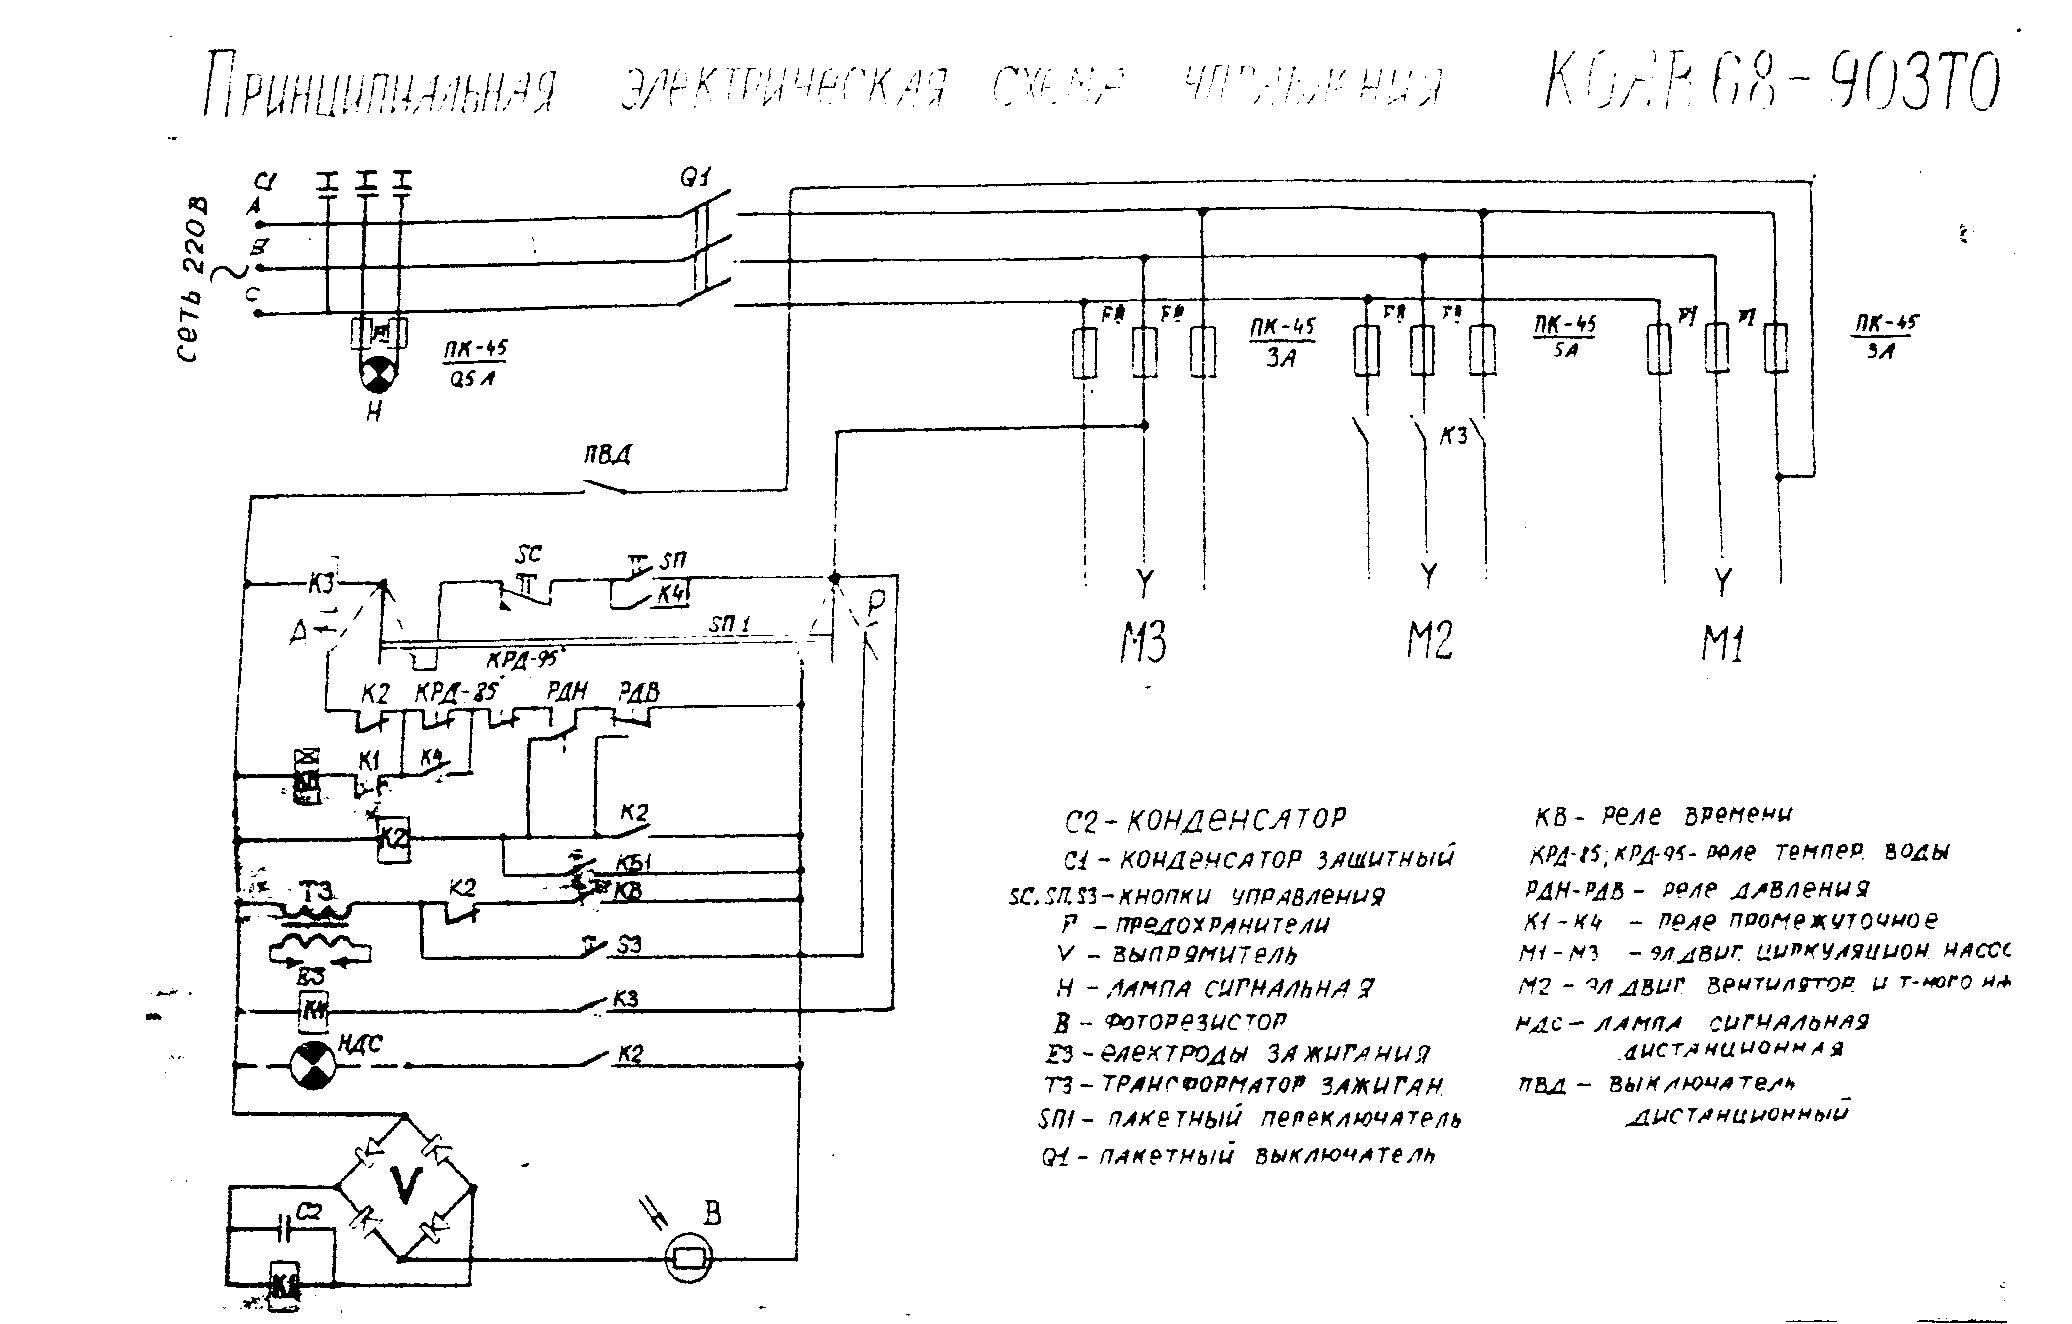 Принципиальная электрическая схема управления КОАВ 68-903ТО
С1
Q1
А
В
С
Сеть 220В
ПК-45
0,5 А
Н
F2 F2
ПК-45
3А
F2 F2
ПК-45
5А
F1 F1
ПК-45
3А
К3
ПВД
SC
SП
К3
К4
Д
Р
SП1
КРД-95°
М3
М2
М1
К2
КРД-85°
РДН
РДВ
К1
К4
К2
К2
КБ1
ТЗ
К2
КВ
SЗ
ЕЗ
К4
К3
НДС
К2
V
С2
В
К1
С2 - КОНДЕНСАТОР
С1 - КОНДЕНСАТОР ЗАЩИТНЫЙ
SC. SП. SЗ - КНОПКИ УПРАВЛЕНИЯ
F - ПРЕДОХРАНИТЕЛИ
V - ВЫПРЯМИТЕЛЬ
Н - ЛАМПА СИГНАЛЬНАЯ
В - ФОТОРЕЗИСТОР
ЕЗ - ЕЛЕКТРОДЫ ЗАЖИГАНИЯ
ТЗ - ТРАНСФОРМАТОР ЗАЖИГАН.
SП1 - ПАКЕТНЫЙ ПЕРЕКЛЮЧАТЕЛЬ
Q1 - ПАКЕТНЫЙ ВЫКЛЮЧАТЕЛЬ
КВ - РЕЛЕ ВРЕМЕНИ
КРД-85; КРД-95 - РЕЛЕ ТЕМПЕР. ВОДЫ
РДН-РДВ - РЕЛЕ ДАВЛЕНИЯ
К1-К4 - РЕЛЕ ПРОМЕЖУТОЧНОЕ
М1-М3 - ЭЛ ДВИГ. ЦИРКУЛЯЦИОН. НАСОС
М2 - ЭЛ ДВИГ. ВЕНТИЛЯТОР. И Т-НОГО НА
НДС - ЛАМПА СИГНАЛЬНАЯ
ДИСТАНЦИОННАЯ
ПВД - ВЫКЛЮЧАТЕЛЬ
ДИСТАНЦИОННЫЙ